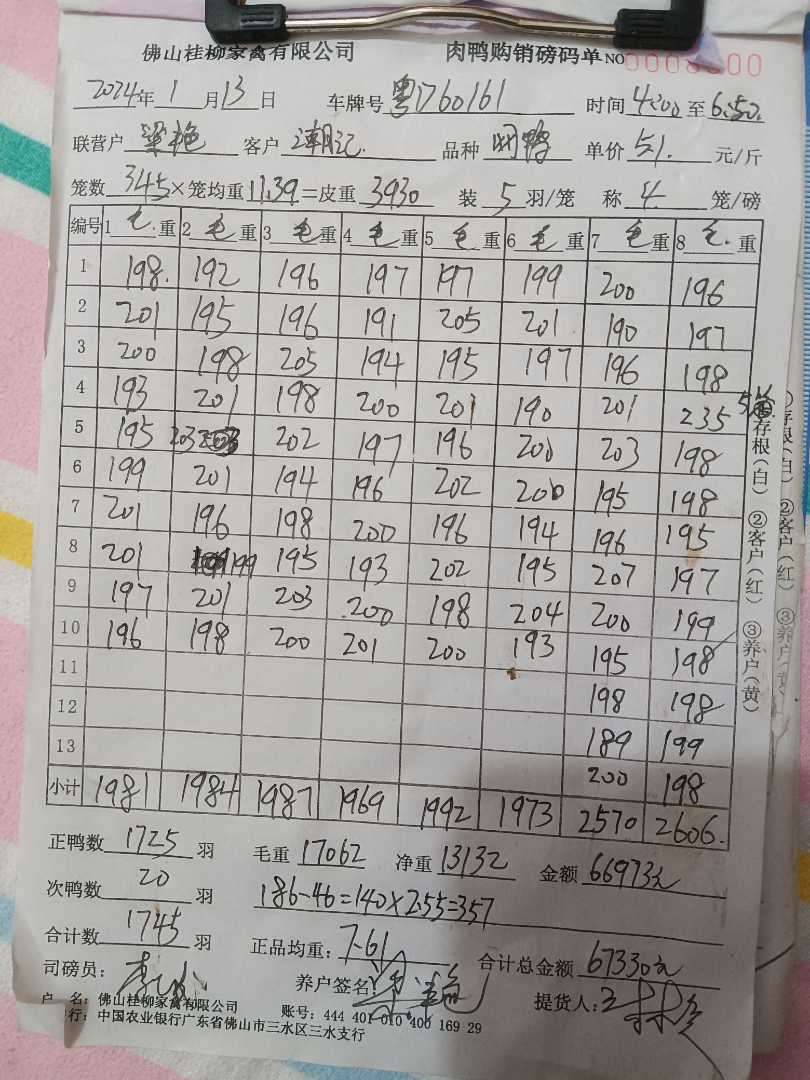 佛山桂柳家禽有限公司 肉鸭购销磅码单 NO
2024年 1 月 13 日 车牌号 粤J760161 时间 4:00 至 6:50
联营户 梁艳 客户 潮记 品种 肉鸭 单价 5.1 元/斤
笼数 345 × 笼均重 11.39 = 皮重 3930 装 5 羽/笼 称 4 笼/磅
编号 1 毛重 2 毛重 3 毛重 4 毛重 5 毛重 6 毛重 7 毛重 8 毛重
1 198 192 196 197 197 199 200 196
2 201 195 196 191 205 201 190 197
3 200 198 205 194 195 197 196 198
4 193 201 198 200 201 190 201 235
5 195 203 202 197 196 200 203 198
6 199 201 194 196 202 200 195 198
7 201 196 198 200 196 194 196 195
8 201 199 195 193 202 195 207 197
9 197 201 203 200 198 204 200 199
10 196 198 200 201 200 193 195 198
11 198 198
12 189 199
13 200 198
小计 1981 1984 1987 1969 1992 1973 2570 2606
正鸭数 1725 羽 毛重 17062 净重 13132 金额 66973元
次鸭数 20 羽 186-46=140×2.55=357
合计数 1745 羽 正品均重: 7.61 合计总金额 67330元
司磅员: 养户签名: 梁艳 提货人:
户 名: 佛山桂柳家禽有限公司 账号: 444 401 010 400 169 29
行: 中国农业银行广东省佛山市三水区三水支行
存根(白) ②客户(红) ③养户(黄)
①存根(白) ②客户(红) ③养户